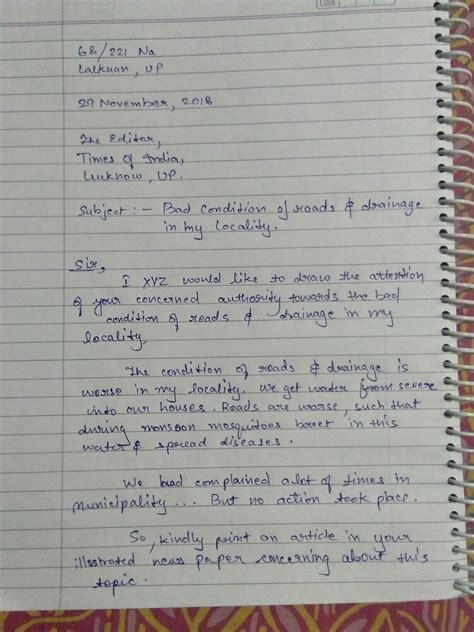 68/221 Na
Lalkuan, UP
29 November, 2018
The Editor,
Times of India,
Lucknow, UP.
Subject :- Bad Condition of roads & drainage
in my locality.
Sir,
I XYZ would like to draw the attention
of your concerned authority towards the bad
condition of roads & drainage in my
locality.
The condition of roads & drainage is
worse in my locality. We get water from severe
into our houses. Roads are worse, such that
during monsoon mosquitoes breet in this
water & spread diseases.
We had complained alot of times in
municipality ... But no action took place.
So, kindly print an article in your
illstrated news paper concerning about this
topic.